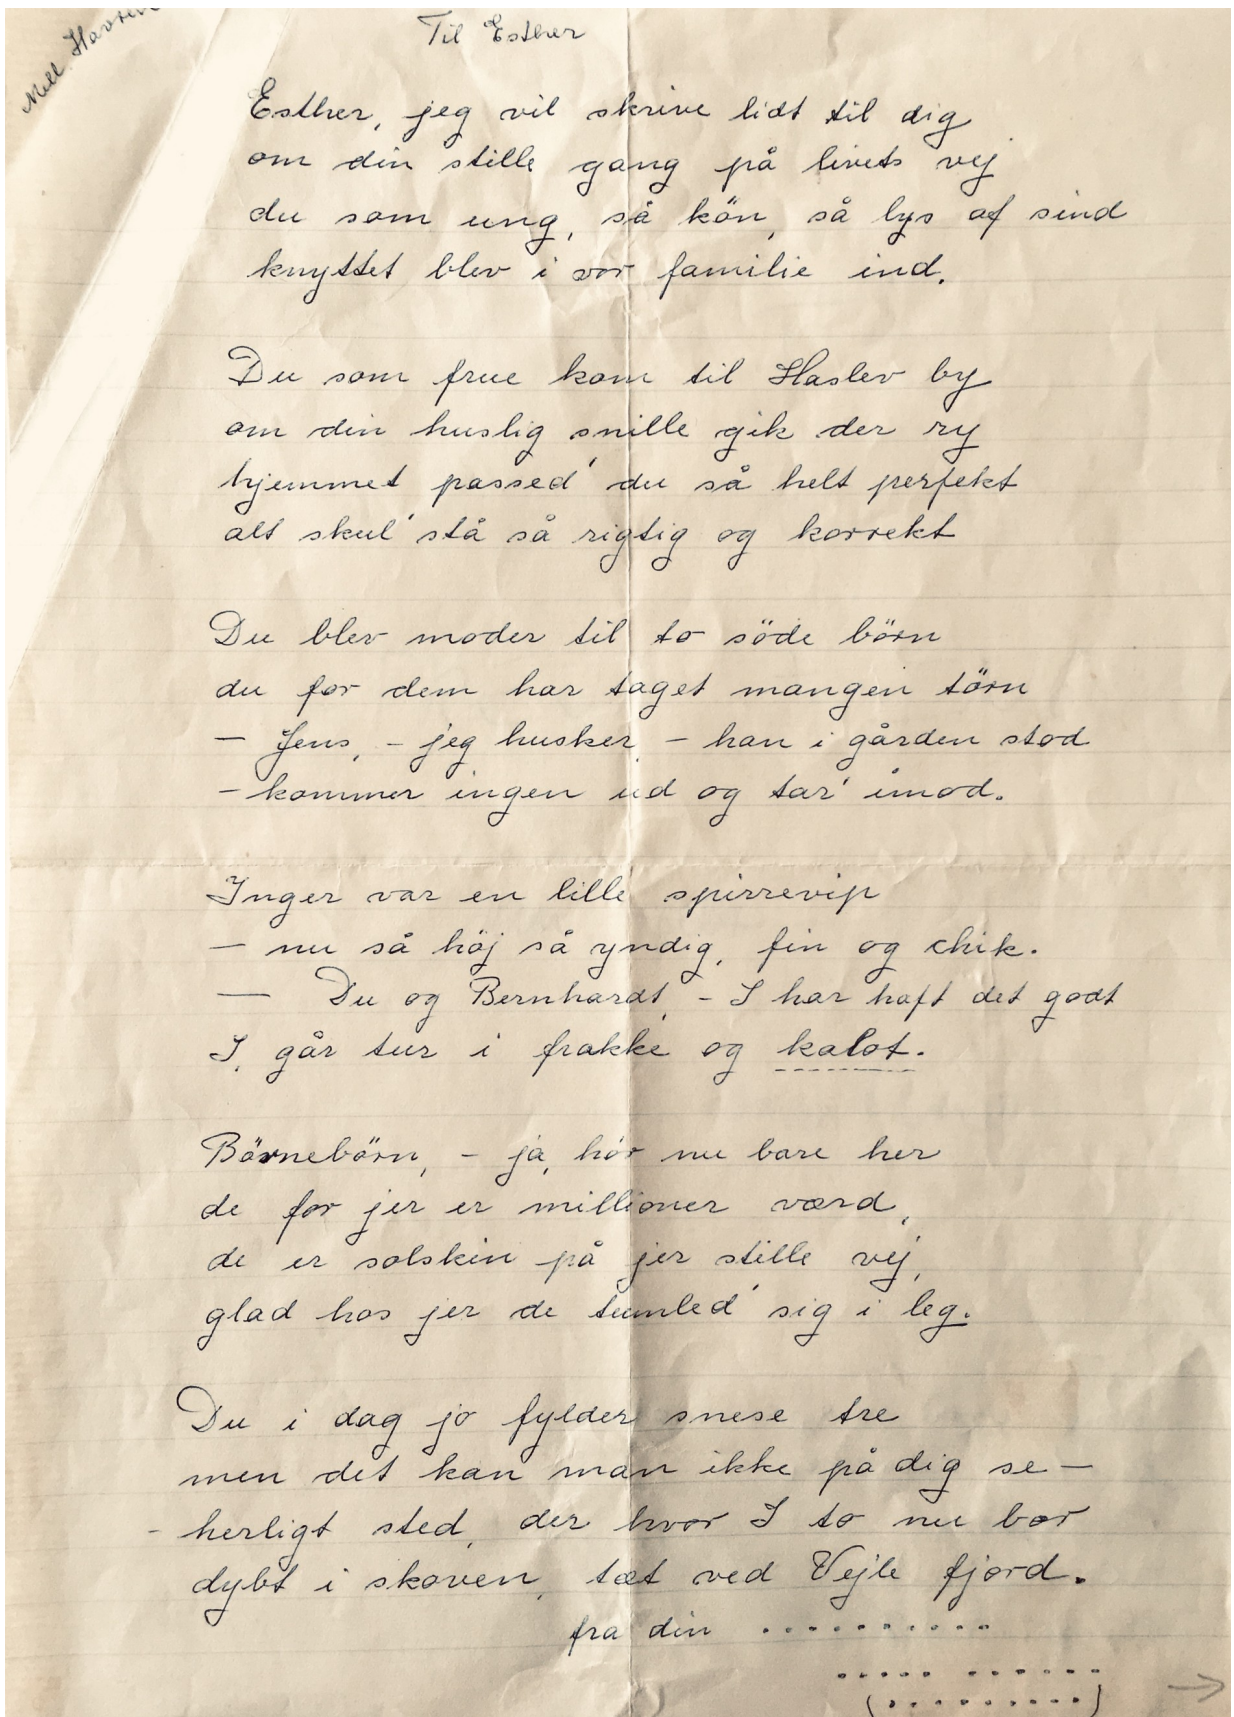 Mel
Til Esther
Esther, jeg vil skrive lidt til dig
om din stille gang på livets vej
du som ung, så kön, så lys af sind
knyttet blev i vor familie ind.
Du som frue kom til Haslev by
om din huslig snille gik der ry
hjemmet passed' du så helt perfekt
alt skul' stå så rigtig og korrekt
Du blev moder til to söde börn
du for dem har taget mangen törn
- Jens, - jeg husker, - han i gården stod
- kommer ingen ud og tar' imod.
Inger var en lille spirrevip
- nu så höj så yndig, fin og chik.
- Du og Bernhardt, - I har haft det godt
I, går tur i frakke og kalot.
Börnebörn, - ja, hör nu bare her
de for jer er millioner værd,
de er solskin på jer stille vej,
glad hos jer de tumled' sig i leg.
Du i dag jo fylder snese tre
men det kan man ikke på dig se -
- herligt sted, der hvor I to nu bor
dybt i skoven, tæt ved Vejle fjord.
fra din ..........
..... ......
(.........)